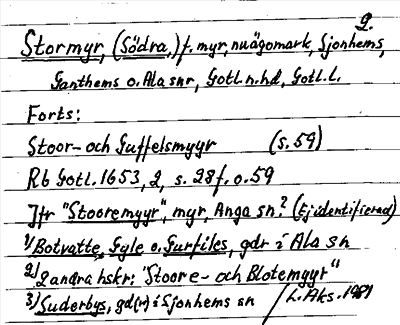 2.
Stormyr, (Södra,) f. myr, nu ägomark, Sjonhems,
Ganthems o. Ala snr, Gotl. n. hd, Gotl. l.
Forts:
Stoor- och Guffelsmyyr (s. 59)
Rb Gotl. 1653, 2, s. 28 f. o. 59
Jfr "Stooremyyr", myr, Anga sn? (Ej identifierad)
1) Botvatte, Gyle o. Gurfiles, gdr i Ala sn
2) I andra hskr: "Stoore- och Blotemyyr"
3) Suderbys, gd(r) i Sjonhems sn / L. Aks. 1981